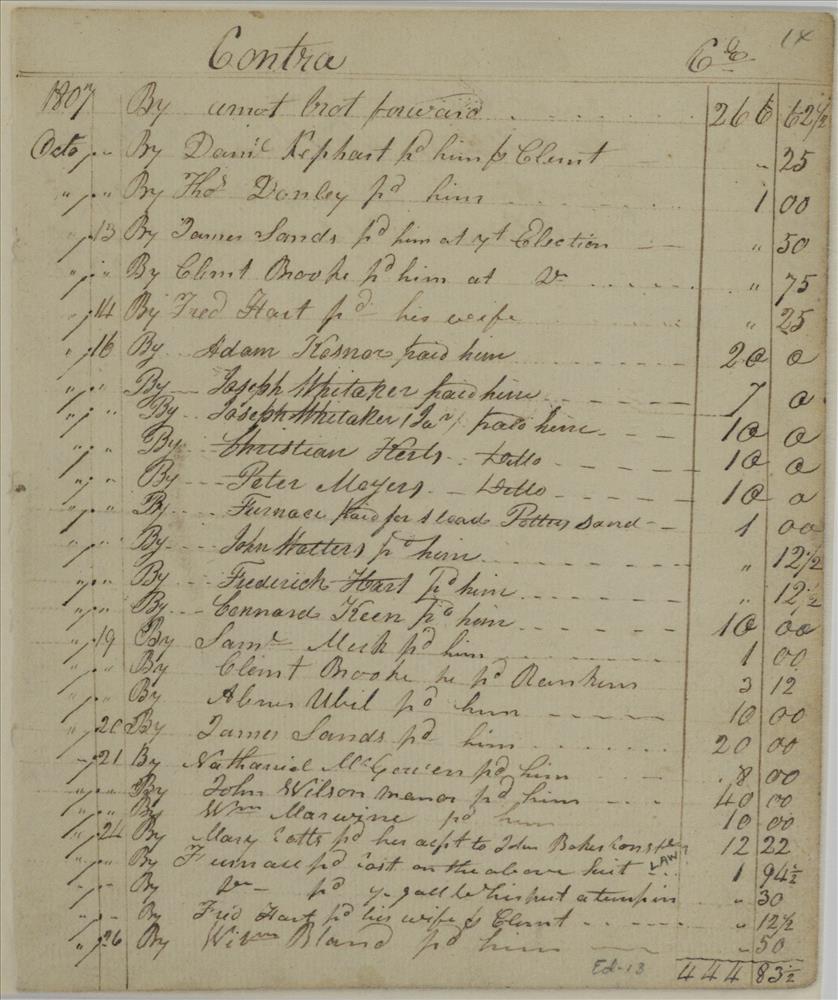 14
Contra Cr
1807 By amot brot forward 266 62 1/2
Octo " By Danil Kephart pd him p Clemt " 25
" " By Thos Donley pd him 1 00
" 13 By James Sands pd him at yt Election " 50
" " By Clemt Brooke pd him at Do " 75
" 14 By Fred Hart pd his wife " 25
" 16 By Adam Kesnor paid him 20 0
" " By Joseph Whitaker paid him 7 0
" " By Joseph Whitaker (Jar) paid him 10 0
" " By Christian Kerls Ditto 10 0
" " By Peter Mayers Ditto 10 0
" " By Furnace paid for 1 load Potters Sand 1 00
" " By John Walters pd him " 12 1/2
" " By Frederick Hart pd him " 12 1/2
" " By Connard Keen pd him 10 00
" 19 By Saml Meck pd him 1 00
" " By Clemt Brooke he pd Rankins 3 12
" " By Abner Ubil pd him 10 00
" 20 By James Sands pd him 20 00
" 21 By Nathaniel McGowen pd him 8 00
" " By John Wilson manor pd him 40 00
" " By Wm Marwine pd him 10 00
" 24 By Mary Cotts pd her acpt to John Baker 12 22
" " By Furnace pd Cost on the above Suit LAW 1 94 1/2
" " By Do pd " 30
" " By Fred Hart pd his wife p Clemt " 12 1/2
" 26 By Wilm Bland pd him " 50
Ed-13 444 83 1/2